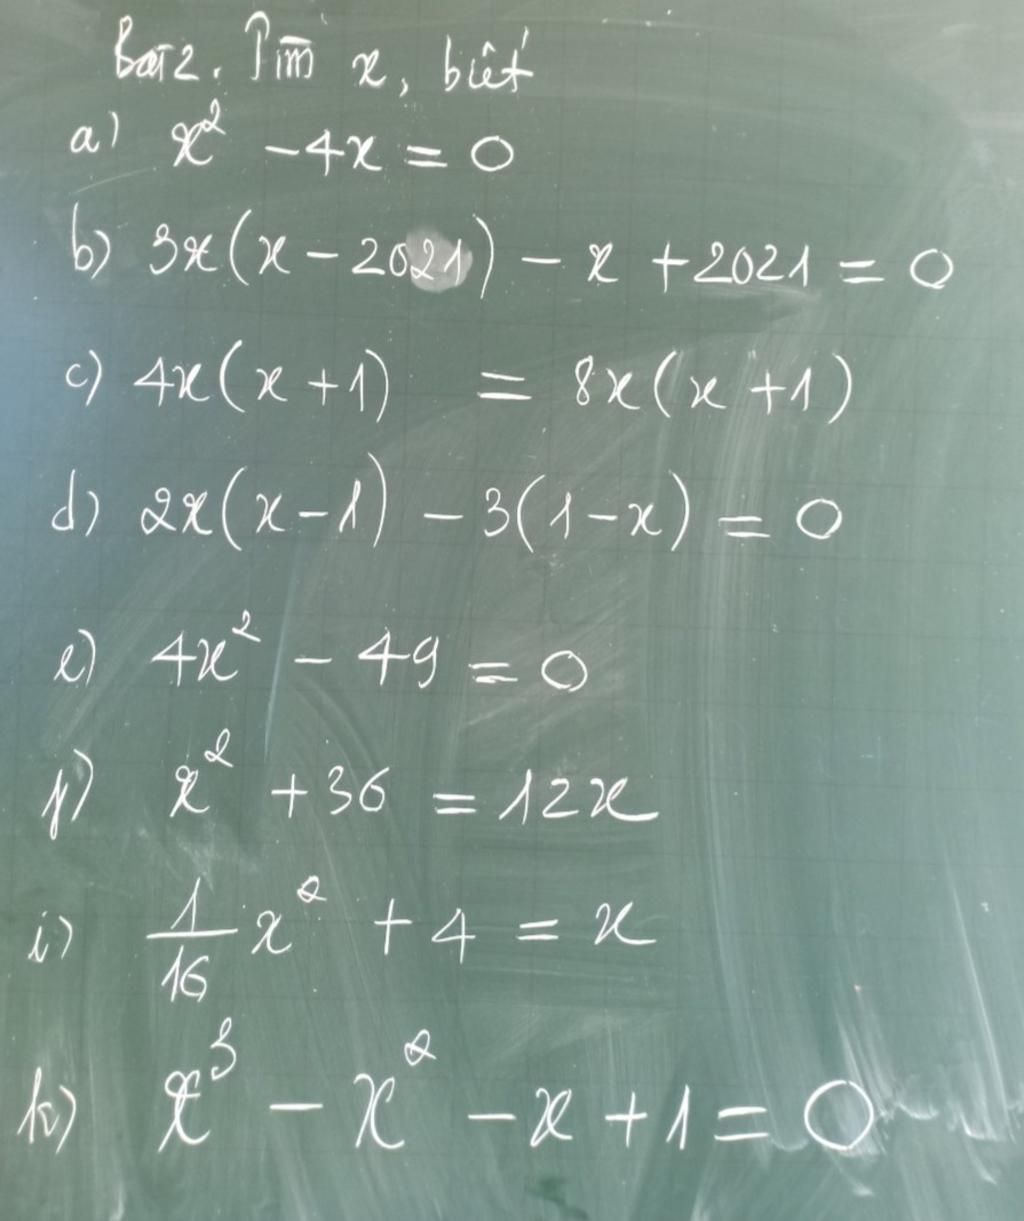 Bài 2. Tìm x, biết
a) x² - 4x = 0
b) 3x(x - 2021) - x + 2021 = 0
c) 4x(x + 1) = 8x(x + 1)
d) 2x(x - 1) - 3(1 - x) = 0
e) 4x² - 49 = 0
f) x² + 36 = 12x
i) 1/16 x² + 4 = x
k) x³ - x² - x + 1 = 0